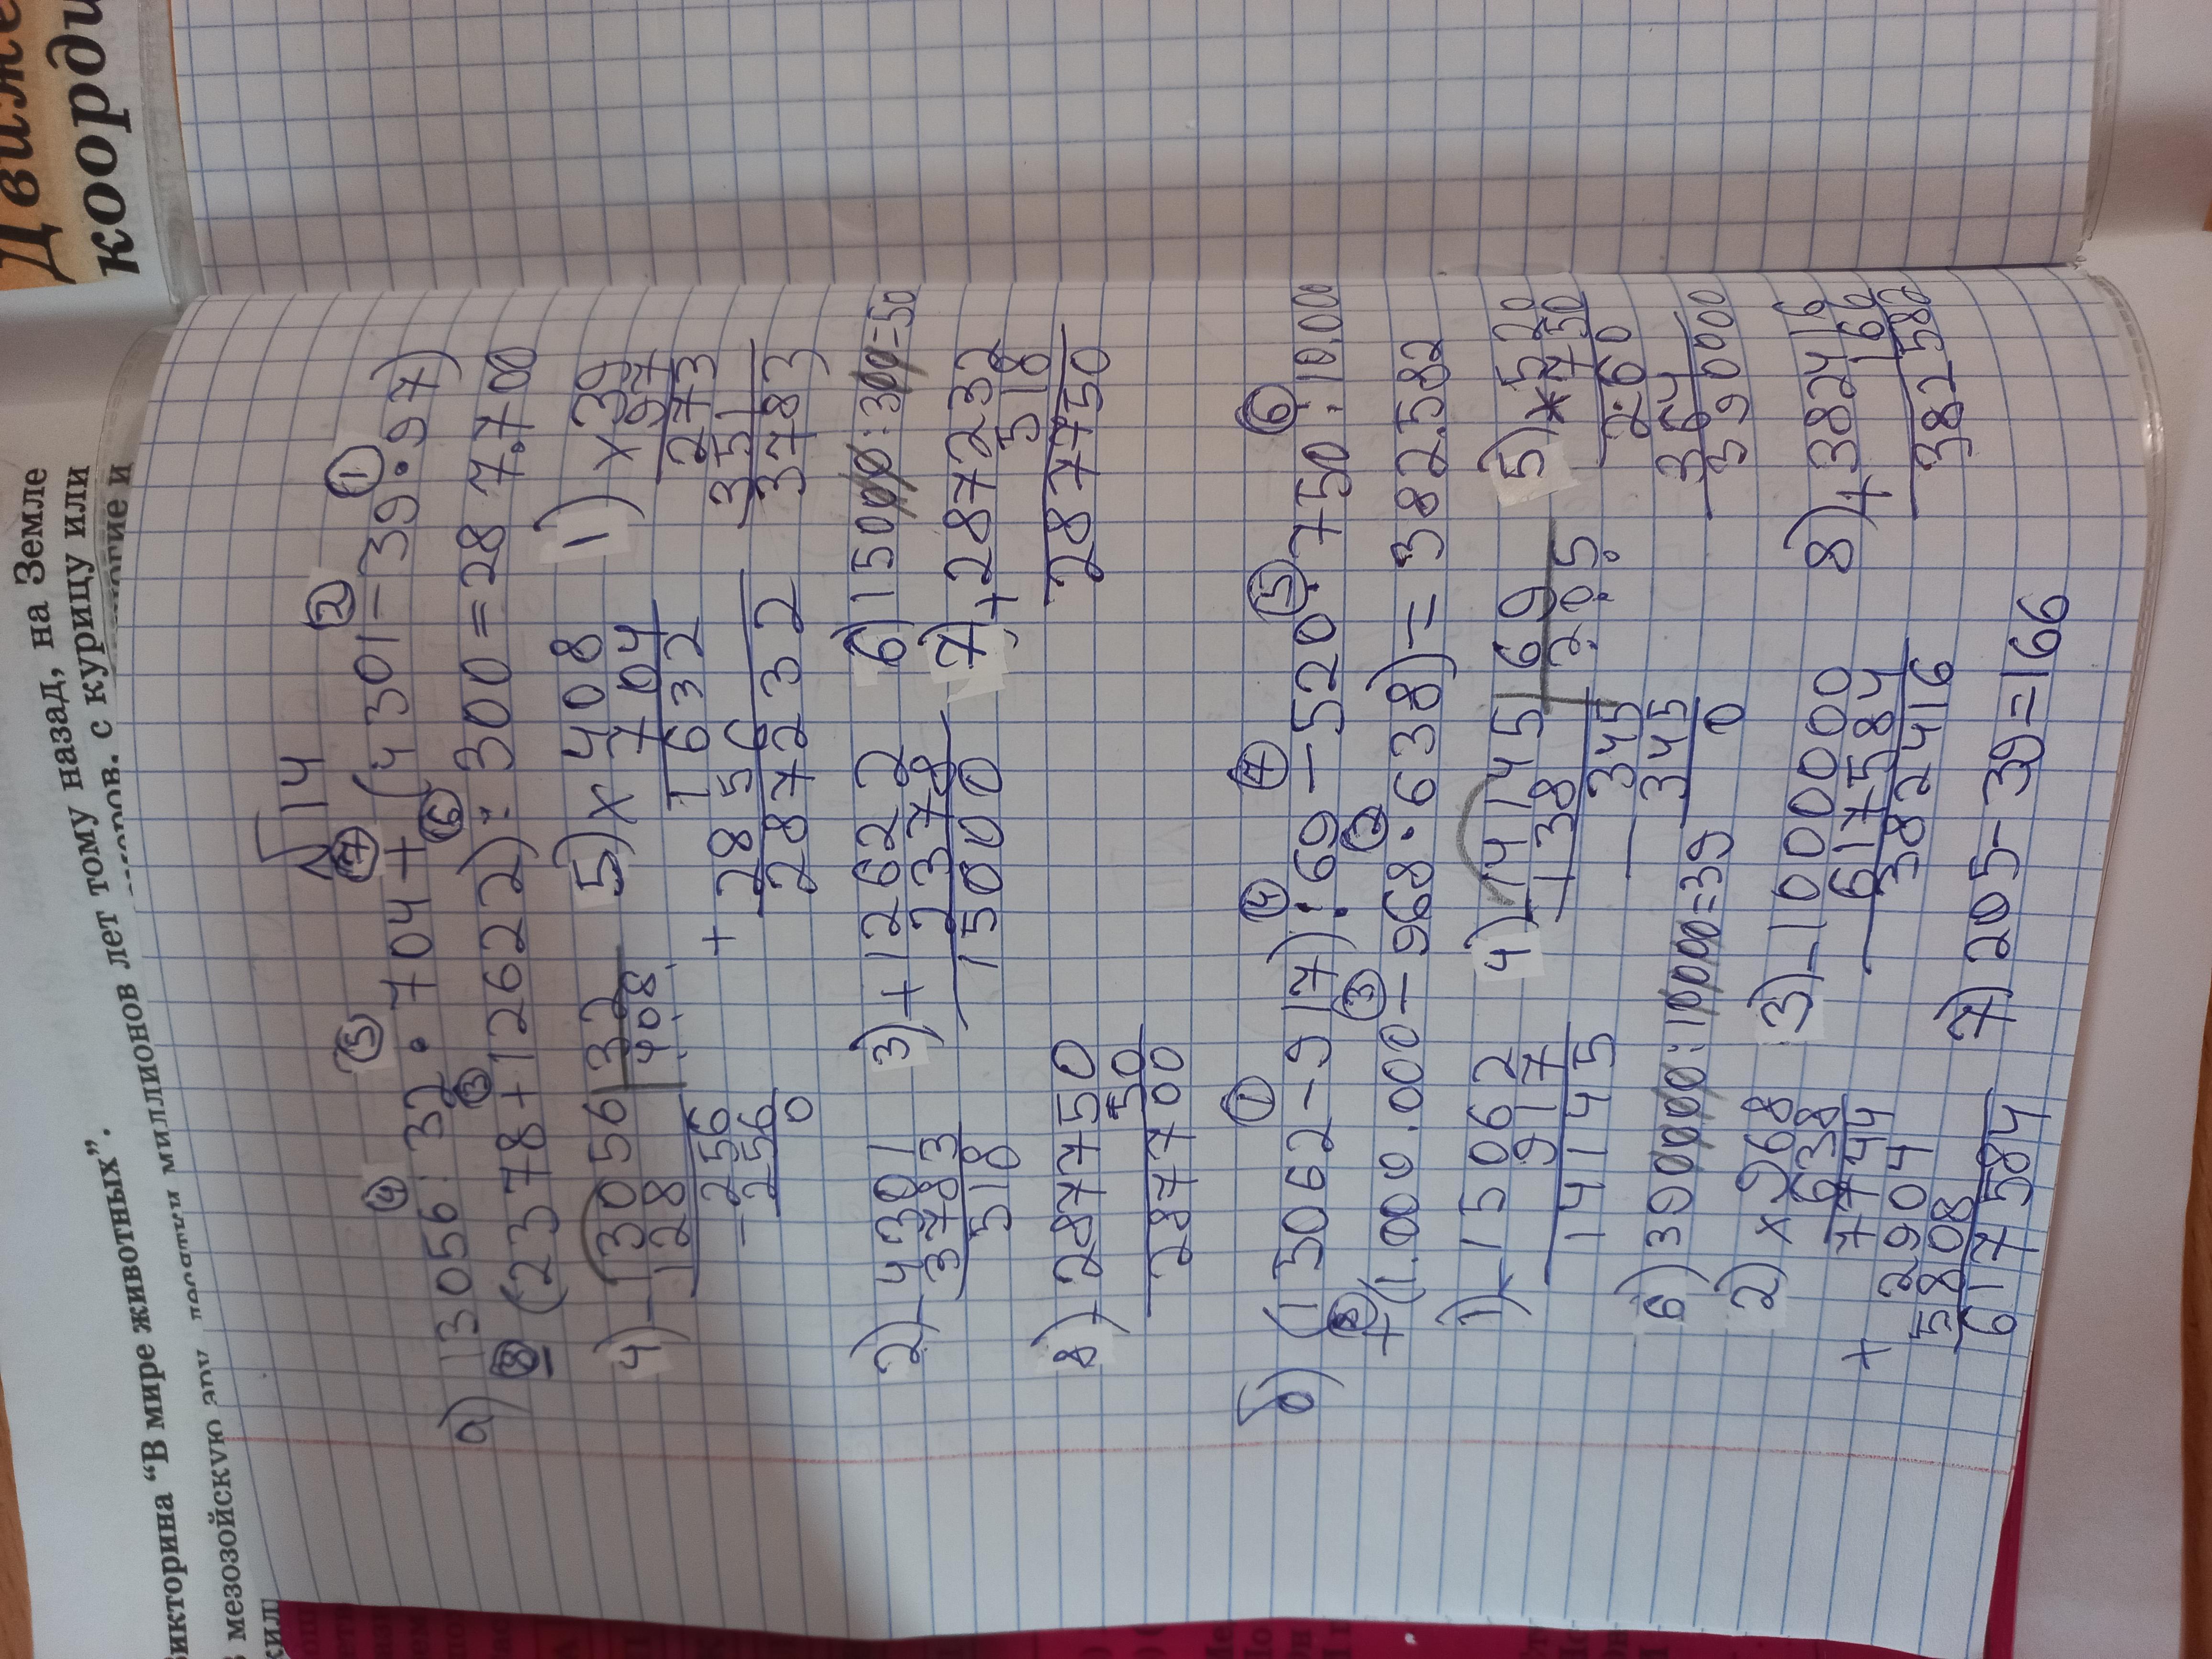 Движе
коорди
Викторина “В мире животных”.
на Земле
лет тому назад,
миллионов
с курицу или
мезозойскую эру
14
④ ⑤ ⑦ ② ①
а) 13056 : 32 · 704 + (4301 - 39 · 97)
⑧ ③ ⑥
- (2378 + 12622) : 300 = 287.700
4) - 13056 | 32
128 | 408
- 256
256
0
5) × 408
704
1632
+ 2856
287232
1) × 39
97
273
351
3783
2) - 4301
3783
518
3) + 12622
2378
15000
6) 15000 : 300 = 50
7) + 287232
518
287750
8) - 287750
50
287700
① ④ ⑦ ⑤ ⑥
б) (15062 - 917) : 69 - 520 · 750 : 10.000
⑧ ③ ②
+ (1.000.000 - 968 · 638) = 382.582
1) - 15062
917
14145
4) - 14145 | 69
138 | 205
345
- 345
0
5) × 520
750
260
364
390000
6) 390000 : 10000 = 39
2) × 968
638
7744
+ 2904
5808
617584
3) - 1000000
617584
382416
8) + 382416
166
382582
7) 205 - 39 = 166